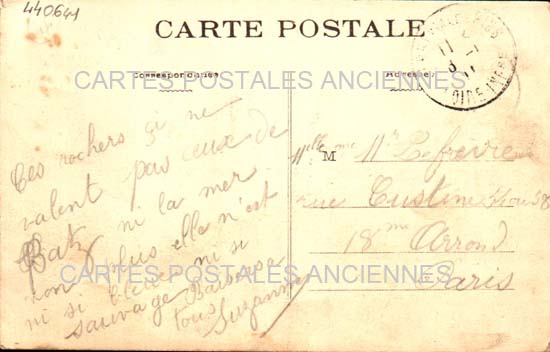 440641
CARTE POSTALE
Correspondance
Adresse
CARTES POSTALES ANCIENNES
Ces rochers si ne
valent pas ceux de
Batz ni la mer
non plus elle n'est
ni si bleue ni si
sauvage Baisers
tous Suzanne
M Mr Lefèvre
rue Custine 58
18me Arrond
Paris
CARTES POSTALES ANCIENNES
LOIRE INFRE